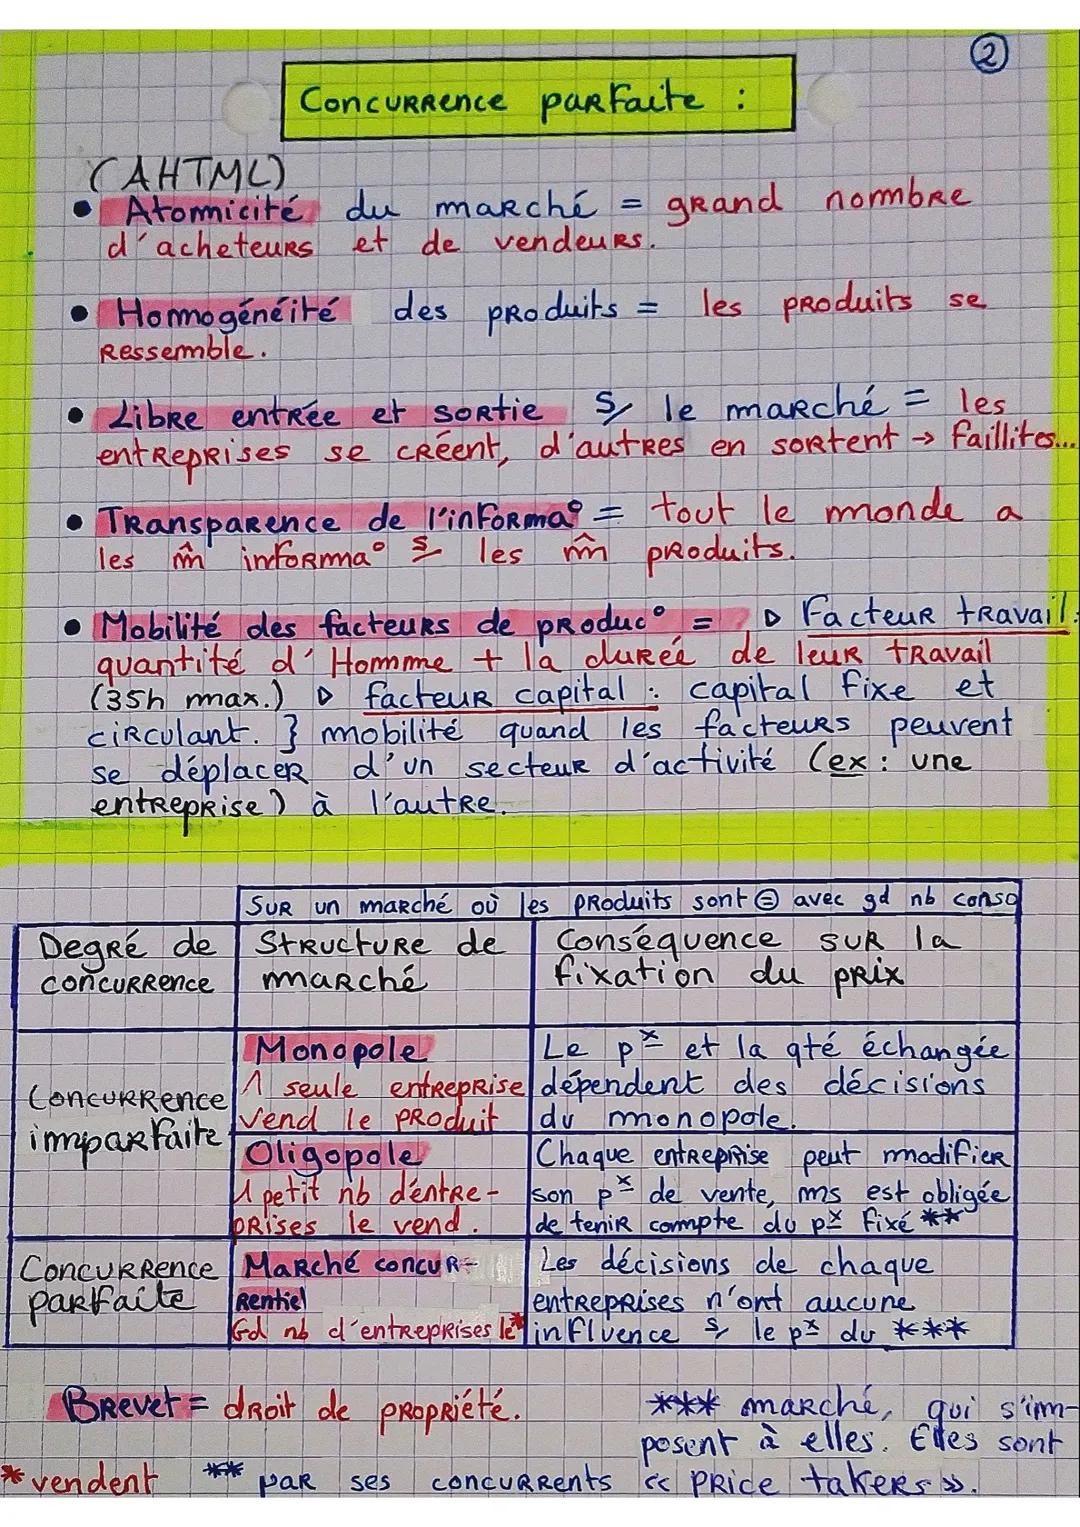 ②
Concurrence parfaite :
(AHTML)
• Atomicité du marché = grand nombre
d'acheteurs et de vendeurs.
• Homogénéité des produits = les produits se
ressemble.
• Libre entrée et sortie s/ le marché = les
entreprises se créent, d'autres en sortent → faillites...
• Transparence de l'informa° = tout le monde a
les m̂ informa° s/ les m̂ produits.
• Mobilité des facteurs de produc° = ▷ Facteur travail :
quantité d'Homme + la durée de leur travail
(35h max.) ▷ facteur capital : capital fixe et
circulant. } mobilité quand les facteurs peuvent
se déplacer d'un secteur d'activité (ex : une
entreprise) à l'autre.
Sur un marché où les produits sont ⊜ avec gd nb conso
Degré de concurrence
Structure de marché
Conséquence sur la fixation du prix
Concurrence imparfaite
Monopole
1 seule entreprise
vend le produit
Le px et la qté échangée
dépendent des décisions
du monopole.
Oligopole
1 petit nb d'entre-
prises le vend.
Chaque entreprise peut modifier
son px de vente, ms est obligée
de tenir compte du px fixé **
Concurrence parfaite
Marché concur-
rentiel
Gd nb d'entreprises le*
Les décisions de chaque
entreprises n'ont aucune
influence s/ le px du ***
Brevet = droit de propriété.
*** marché, qui s'im-
posent à elles. Elles sont
« price takers ».
* vendent
** par ses concurrents